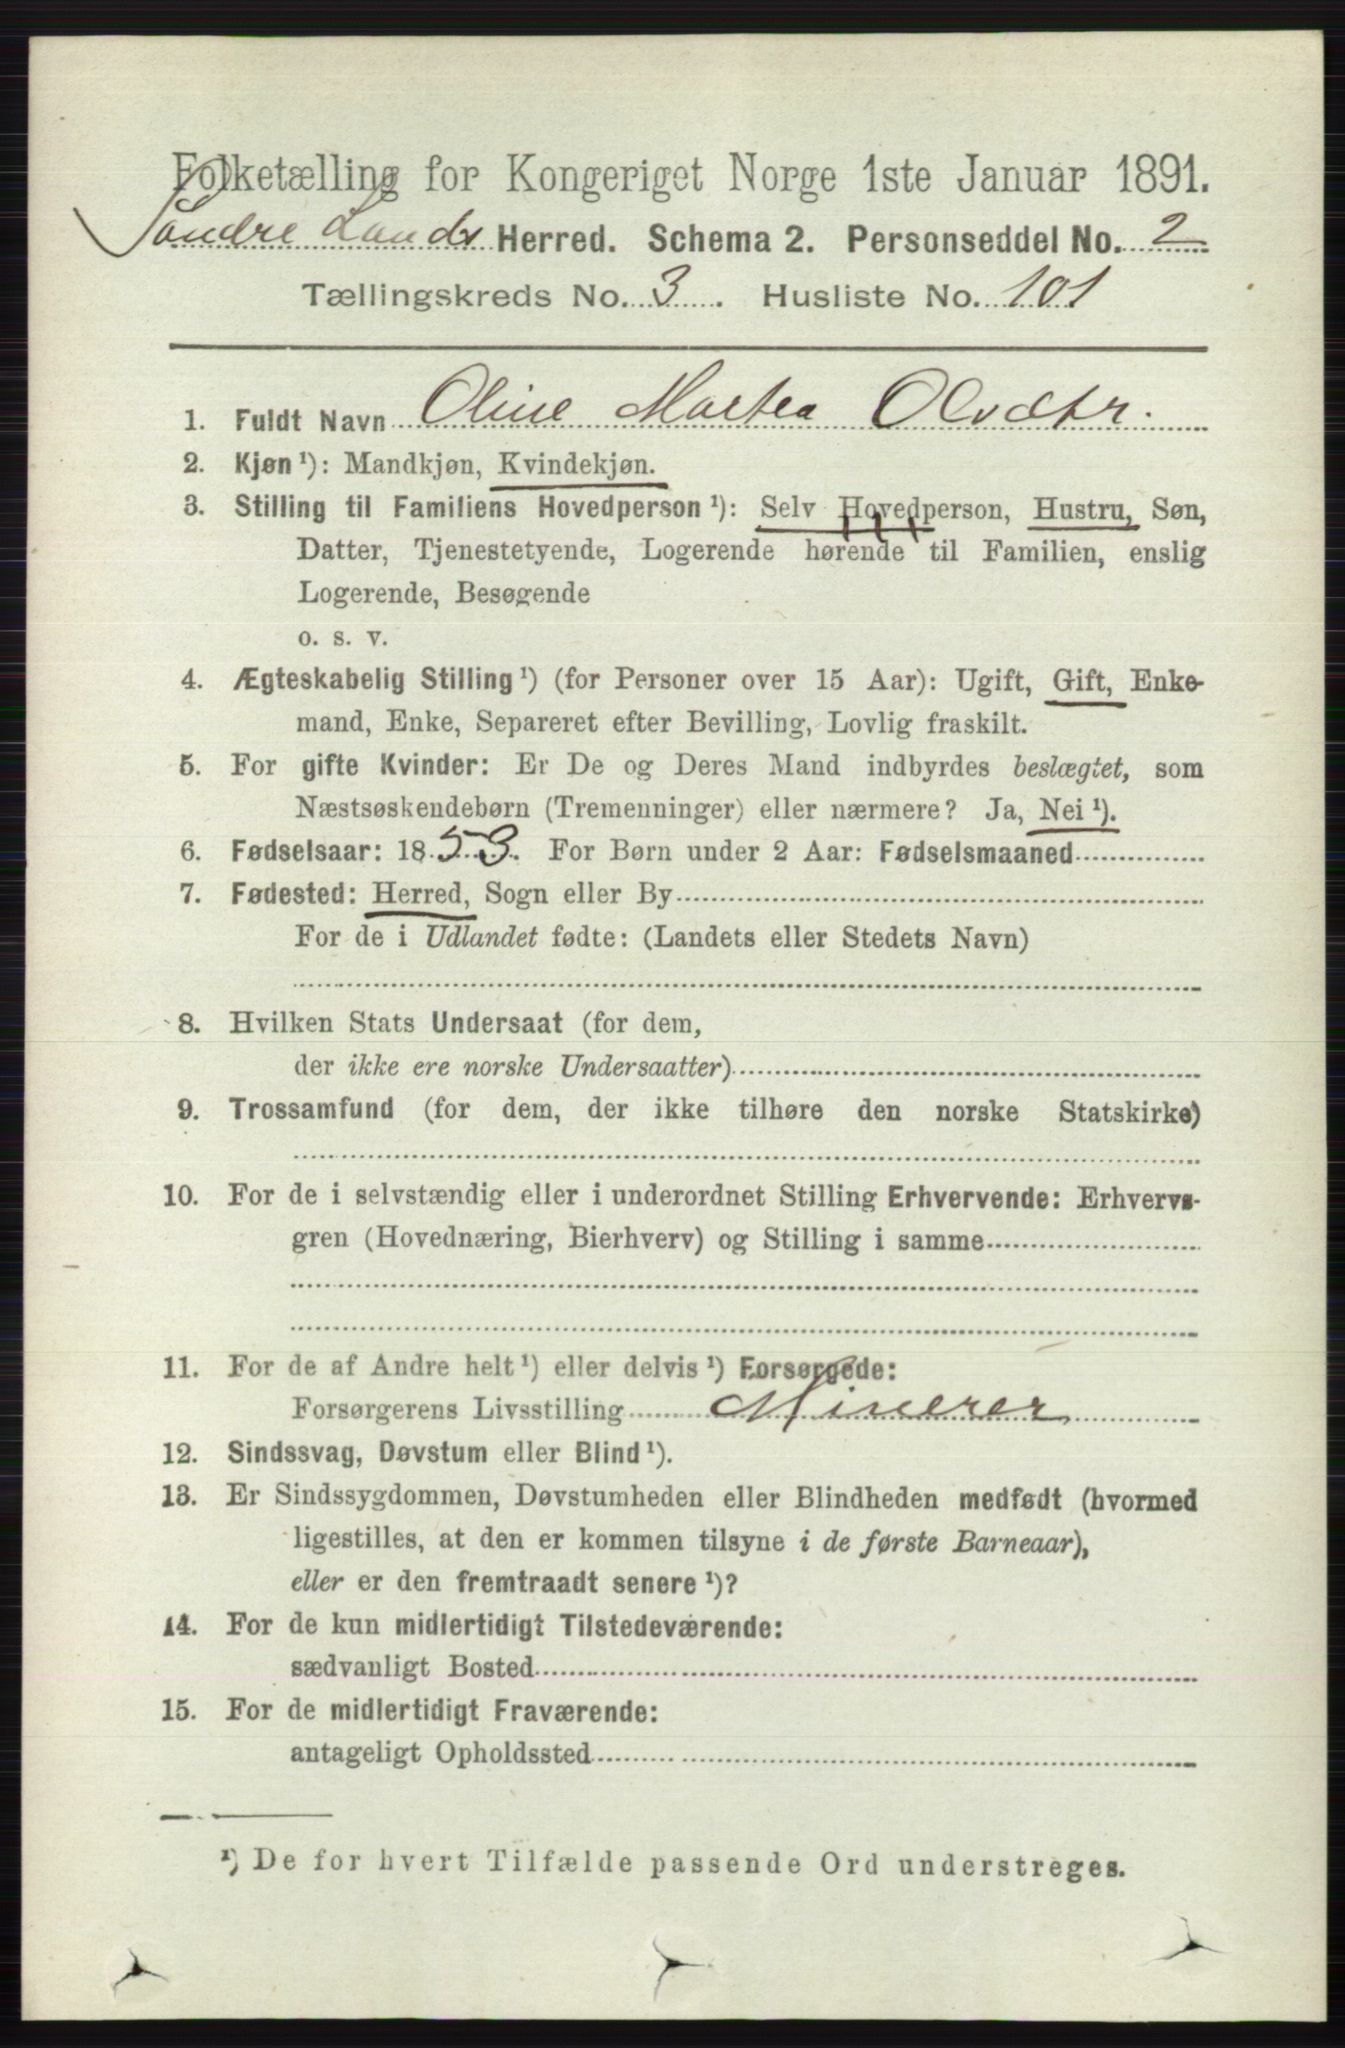 Folketælling for Kongeriget Norge 1ste Januar 1891.
Søndre Lands Herred. Schema 2. Personseddel No. 2
Tællingskreds No. 3. Husliste No. 101
1. Fuldt Navn Oline Marthea Olsdtr.
2. Kjøn ¹): Mandkjøn, Kvindekjøn.
3. Stilling til Familiens Hovedperson ¹): Selv Hovedperson, Hustru, Søn,
Datter, Tjenestetyende, Logerende hørende til Familien, enslig
Logerende, Besøgende
o. s. v.
4. Ægteskabelig Stilling ¹) (for Personer over 15 Aar): Ugift, Gift, Enke-
mand, Enke, Separeret efter Bevilling, Lovlig fraskilt.
5. For gifte Kvinder: Er De og Deres Mand indbyrdes beslægtet, som
Næstsøskendebørn (Tremenninger) eller nærmere? Ja, Nei ¹).
6. Fødselsaar: 1853. For Børn under 2 Aar: Fødselsmaaned
7. Fødested: Herred, Sogn eller By
For de i Udlandet fødte: (Landets eller Stedets Navn)
8. Hvilken Stats Undersaat (for dem,
der ikke ere norske Undersaatter)
9. Trossamfund (for dem, der ikke tilhøre den norske Statskirke)
10. For de i selvstændig eller i underordnet Stilling Erhvervende: Erhvervs-
gren (Hovednæring, Bierhverv) og Stilling i samme
11. For de af Andre helt ¹) eller delvis ¹) Forsørgede:
Forsørgerens Livsstilling Minerer
12. Sindssvag, Døvstum eller Blind ¹).
13. Er Sindssygdommen, Døvstumheden eller Blindheden medfødt (hvormed
ligestilles, at den er kommen tilsyne i de første Barneaar),
eller er den fremtraadt senere ¹)?
14. For de kun midlertidigt Tilstedeværende:
sædvanligt Bosted
15. For de midlertidigt Fraværende:
antageligt Opholdssted
¹) De for hvert Tilfælde passende Ord understreges.